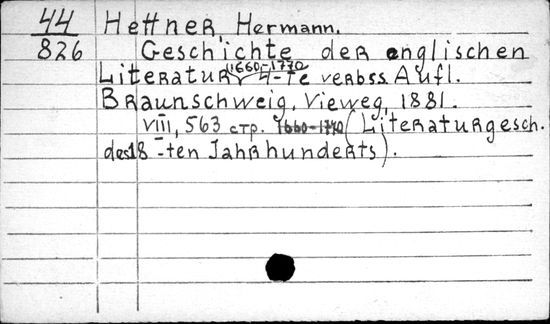 44 Hettner, Hermann.
826 Geschichte der englischen
Literatur 1660-1770 4-te verbss. Aufl.
Braunschweig, Vieweg, 1881.
VIII, 563 стр. (Literaturgesch.
des 18-ten Jahrhunderts).